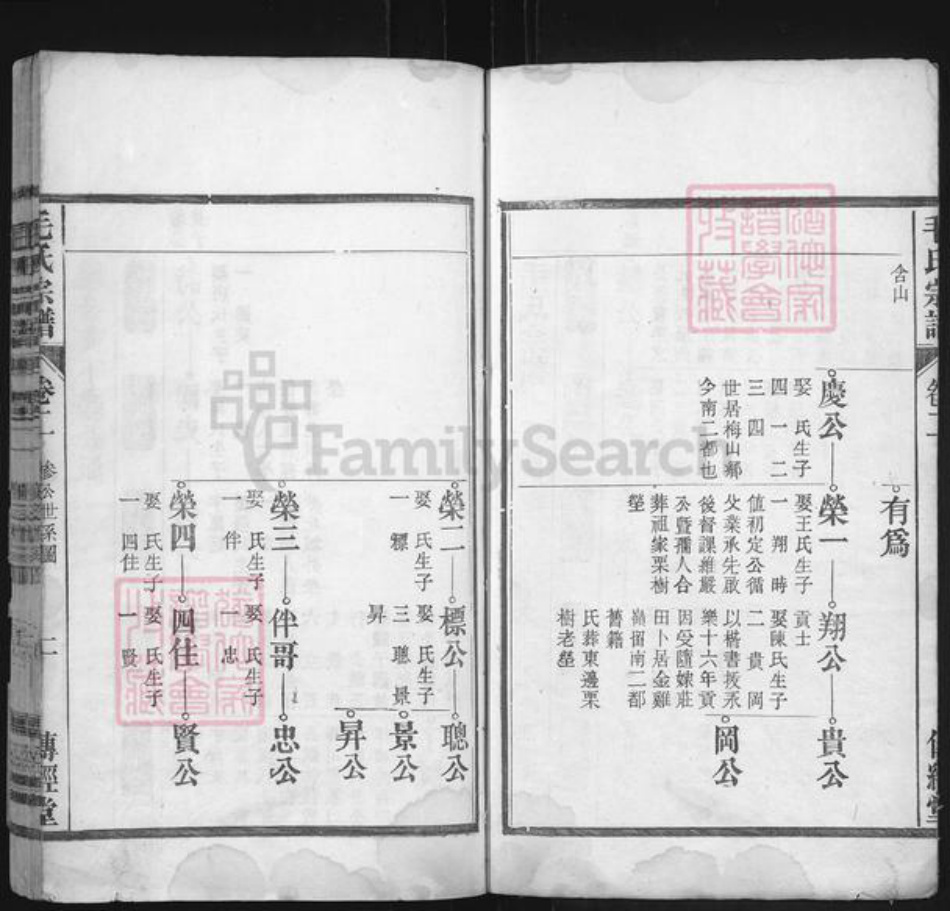 毛氏宗譜
卷二
含山
有為
慶公
娶 氏生子
四 一 二
三 四
世居梅山鄰
今南二都也
榮一
娶王氏生子
一 翔 時
值初定公循
父業承先啟
後督課維嚴
公暨孺人合
葬祖家栗樹
塋
翔公
貢士
娶陳氏生子
二 貴 岡
以楷書拔永
樂十六年貢
因受隨嫁莊
田卜居金雞
嶺留南二都
舊籍
氏葬東邊栗
樹老塋
貴公
岡公
傳經堂
榮二
娶 氏生子
一 標
標公
娶 氏生子
三 聰 景
昇
聰公
景公
昇公
榮三
娶 氏生子
一 伴
伴哥
娶 氏生子
一 忠
忠公
榮四
娶 氏生子
一 四住
四住
娶 氏生子
一 賢
賢公
毛氏宗譜
卷二
參公世系圖
二
傳經堂
FamilySearch